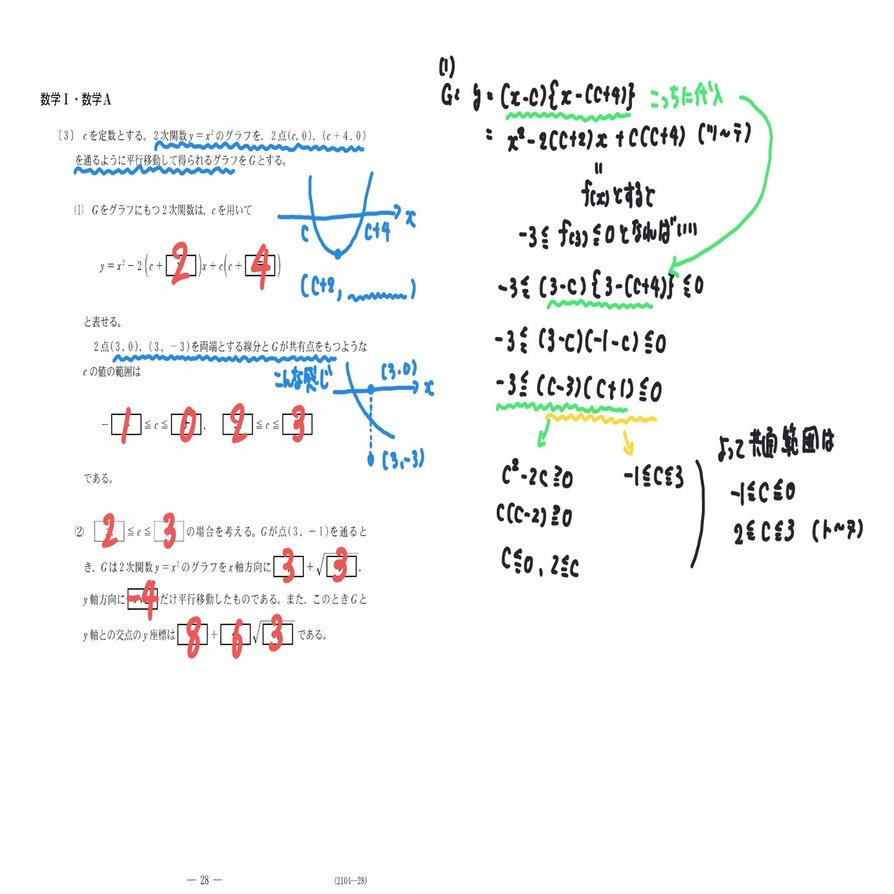 数学Ⅰ・数学A
〔3〕 cを定数とする。2次関数y=x²のグラフを，2点(c, 0)，(c+4, 0)
を通るように平行移動して得られるグラフをGとする。
c c+4 x
(c+2, )
(1) Gをグラフにもつ2次関数は，cを用いて
y=x²-2(c+2)x+c(c+4)
と表せる。
2点(3, 0)，(3, -3)を両端とする線分とGが共有点をもつような
cの値の範囲は
こんな感じ (3,0) x
(3,-3)
-1≦c≦0，2≦c≦3
である。
(2) 2≦c≦3の場合を考える。Gが点(3, -1)を通ると
き，Gは2次関数y=x²のグラフをx軸方向に3+√3，
y軸方向に-4だけ平行移動したものである。また，このときGと
y軸との交点のy座標は8+6√3である。
— 28 —
(2104—28)
(1)
G: y=(x-c){x-(c+4)} こっちに代入
= x²-2(c+2)x+c(c+4) (ツ〜テ)
=
f(x)とすると
-3≦f(3)≦0となればいい
-3≦(3-c){3-(c+4)}≦0
-3≦(3-c)(-1-c)≦0
-3≦(c-3)(c+1)≦0
c²-2c≧0
c(c-2)≧0
c≦0, 2≦c
-1≦c≦3
よって共通範囲は
-1≦c≦0
2≦c≦3 (ト〜ヌ)